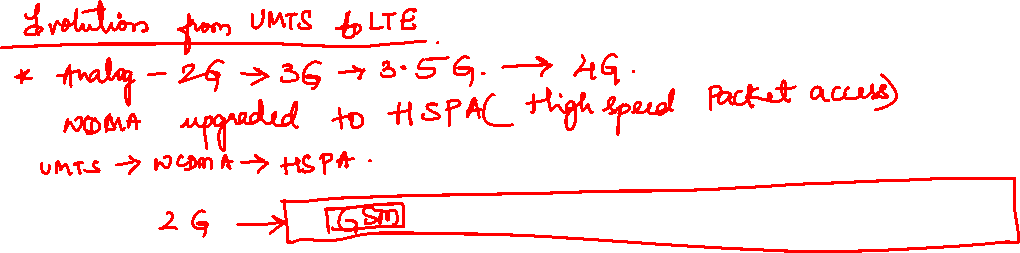 Evolution from UMTS to LTE.
* Analog - 2G → 3G → 3.5G. → 4G.
WCDMA upgraded to HSPA( High speed Packet access)
UMTS → WCDMA → HSPA.
2G → GSM